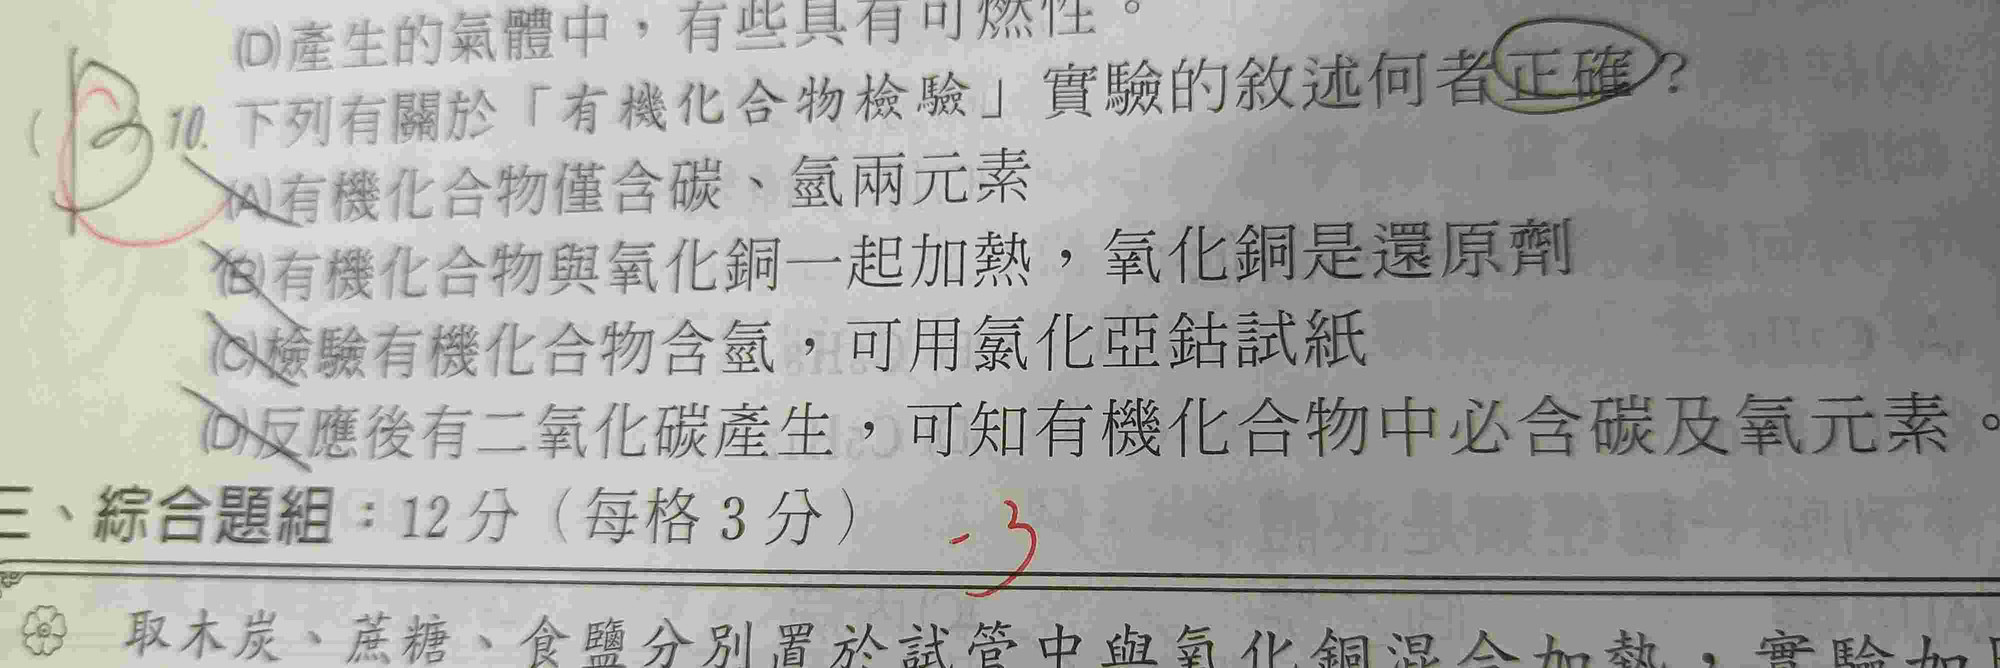 (D)產生的氣體中，有些具有可燃性。
(B 10. 下列有關於「有機化合物檢驗」實驗的敘述何者正確？
(A)有機化合物僅含碳、氫兩元素
(B)有機化合物與氧化銅一起加熱，氧化銅是還原劑
(C)檢驗有機化合物含氫，可用氯化亞鈷試紙
(D)反應後有二氧化碳產生，可知有機化合物中必含碳及氧元素。
三、綜合題組：12分（每格3分）
-3
取木炭、蔗糖、食鹽分別置於試管中與氧化銅混合加熱，實驗如